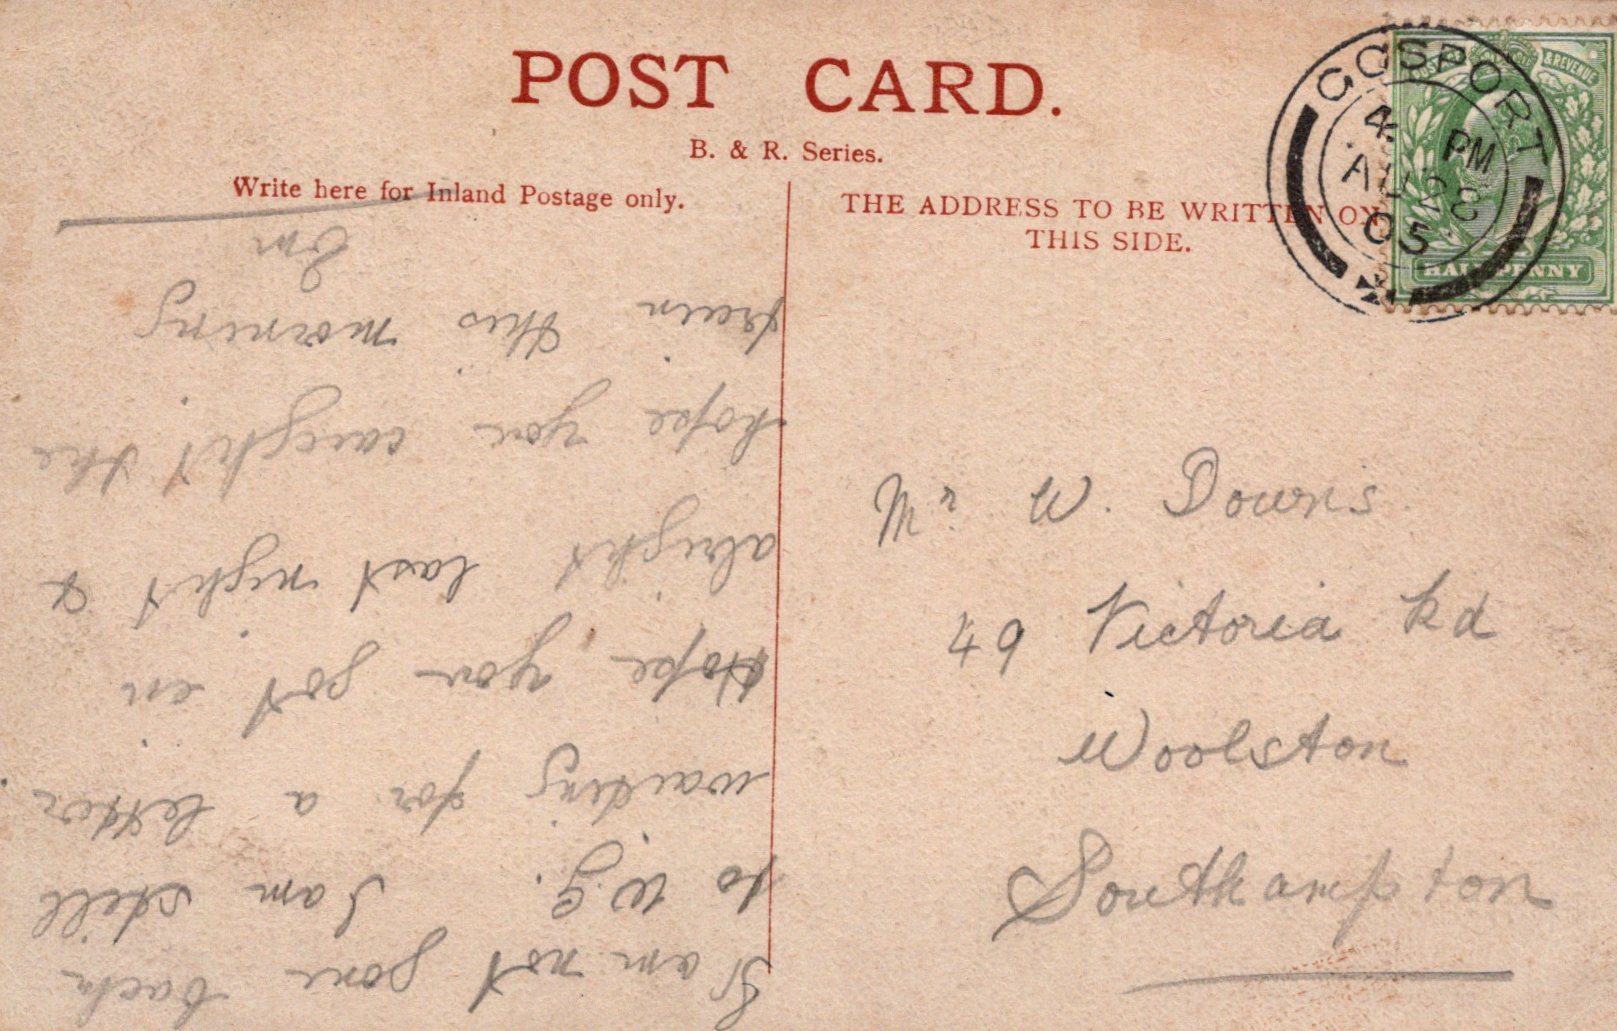 POST CARD.
B. & R. Series.
Write here for Inland Postage only.
THE ADDRESS TO BE WRITTEN ON
THIS SIDE.
GOSPORT
4 PM
AU 28
05
& REVENUE
HALFPENNY
I am not gone back
to W.G. I am still
waiting for a letter
Hope you got in
alright last night &
hope you caught the
train this morning
Em
Mr W. Downs.
49 Victoria Rd
Woolston
Southampton